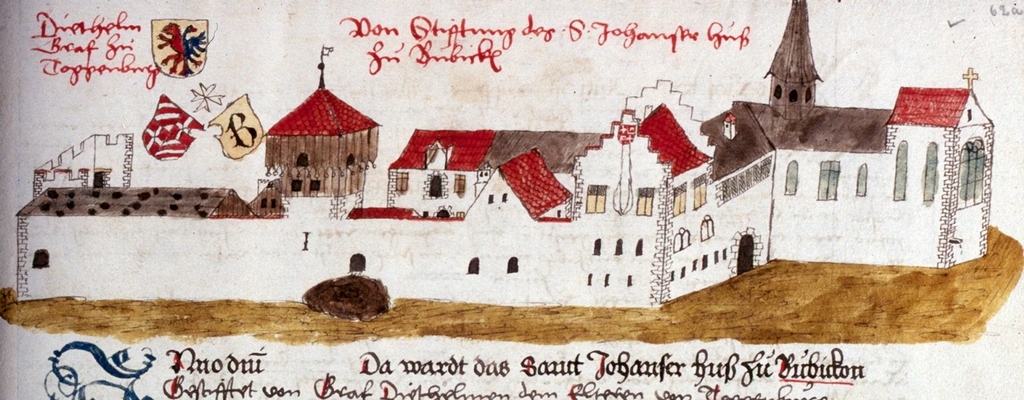 Diethelm
Graf zu
Toggenburg
Von Stifftung des S. Johanser huß
zu Bubickh
62a
B
I
Anno dnĩ Da wardt das Sannt Johanser huß zu Bubickon
Gestifftet von Graf Diethelmen dem Elteren von Toggenburg